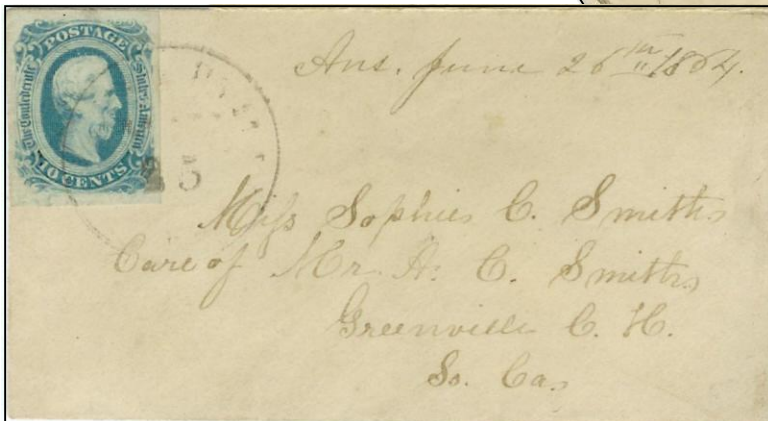 POSTAGE
The Confederate States of America
10 CENTS
25
Ans. June 26th 1864.
Miss Sophie C. Smith
Care of Mr. A. C. Smith
Greenville C. H.
So. Ca.